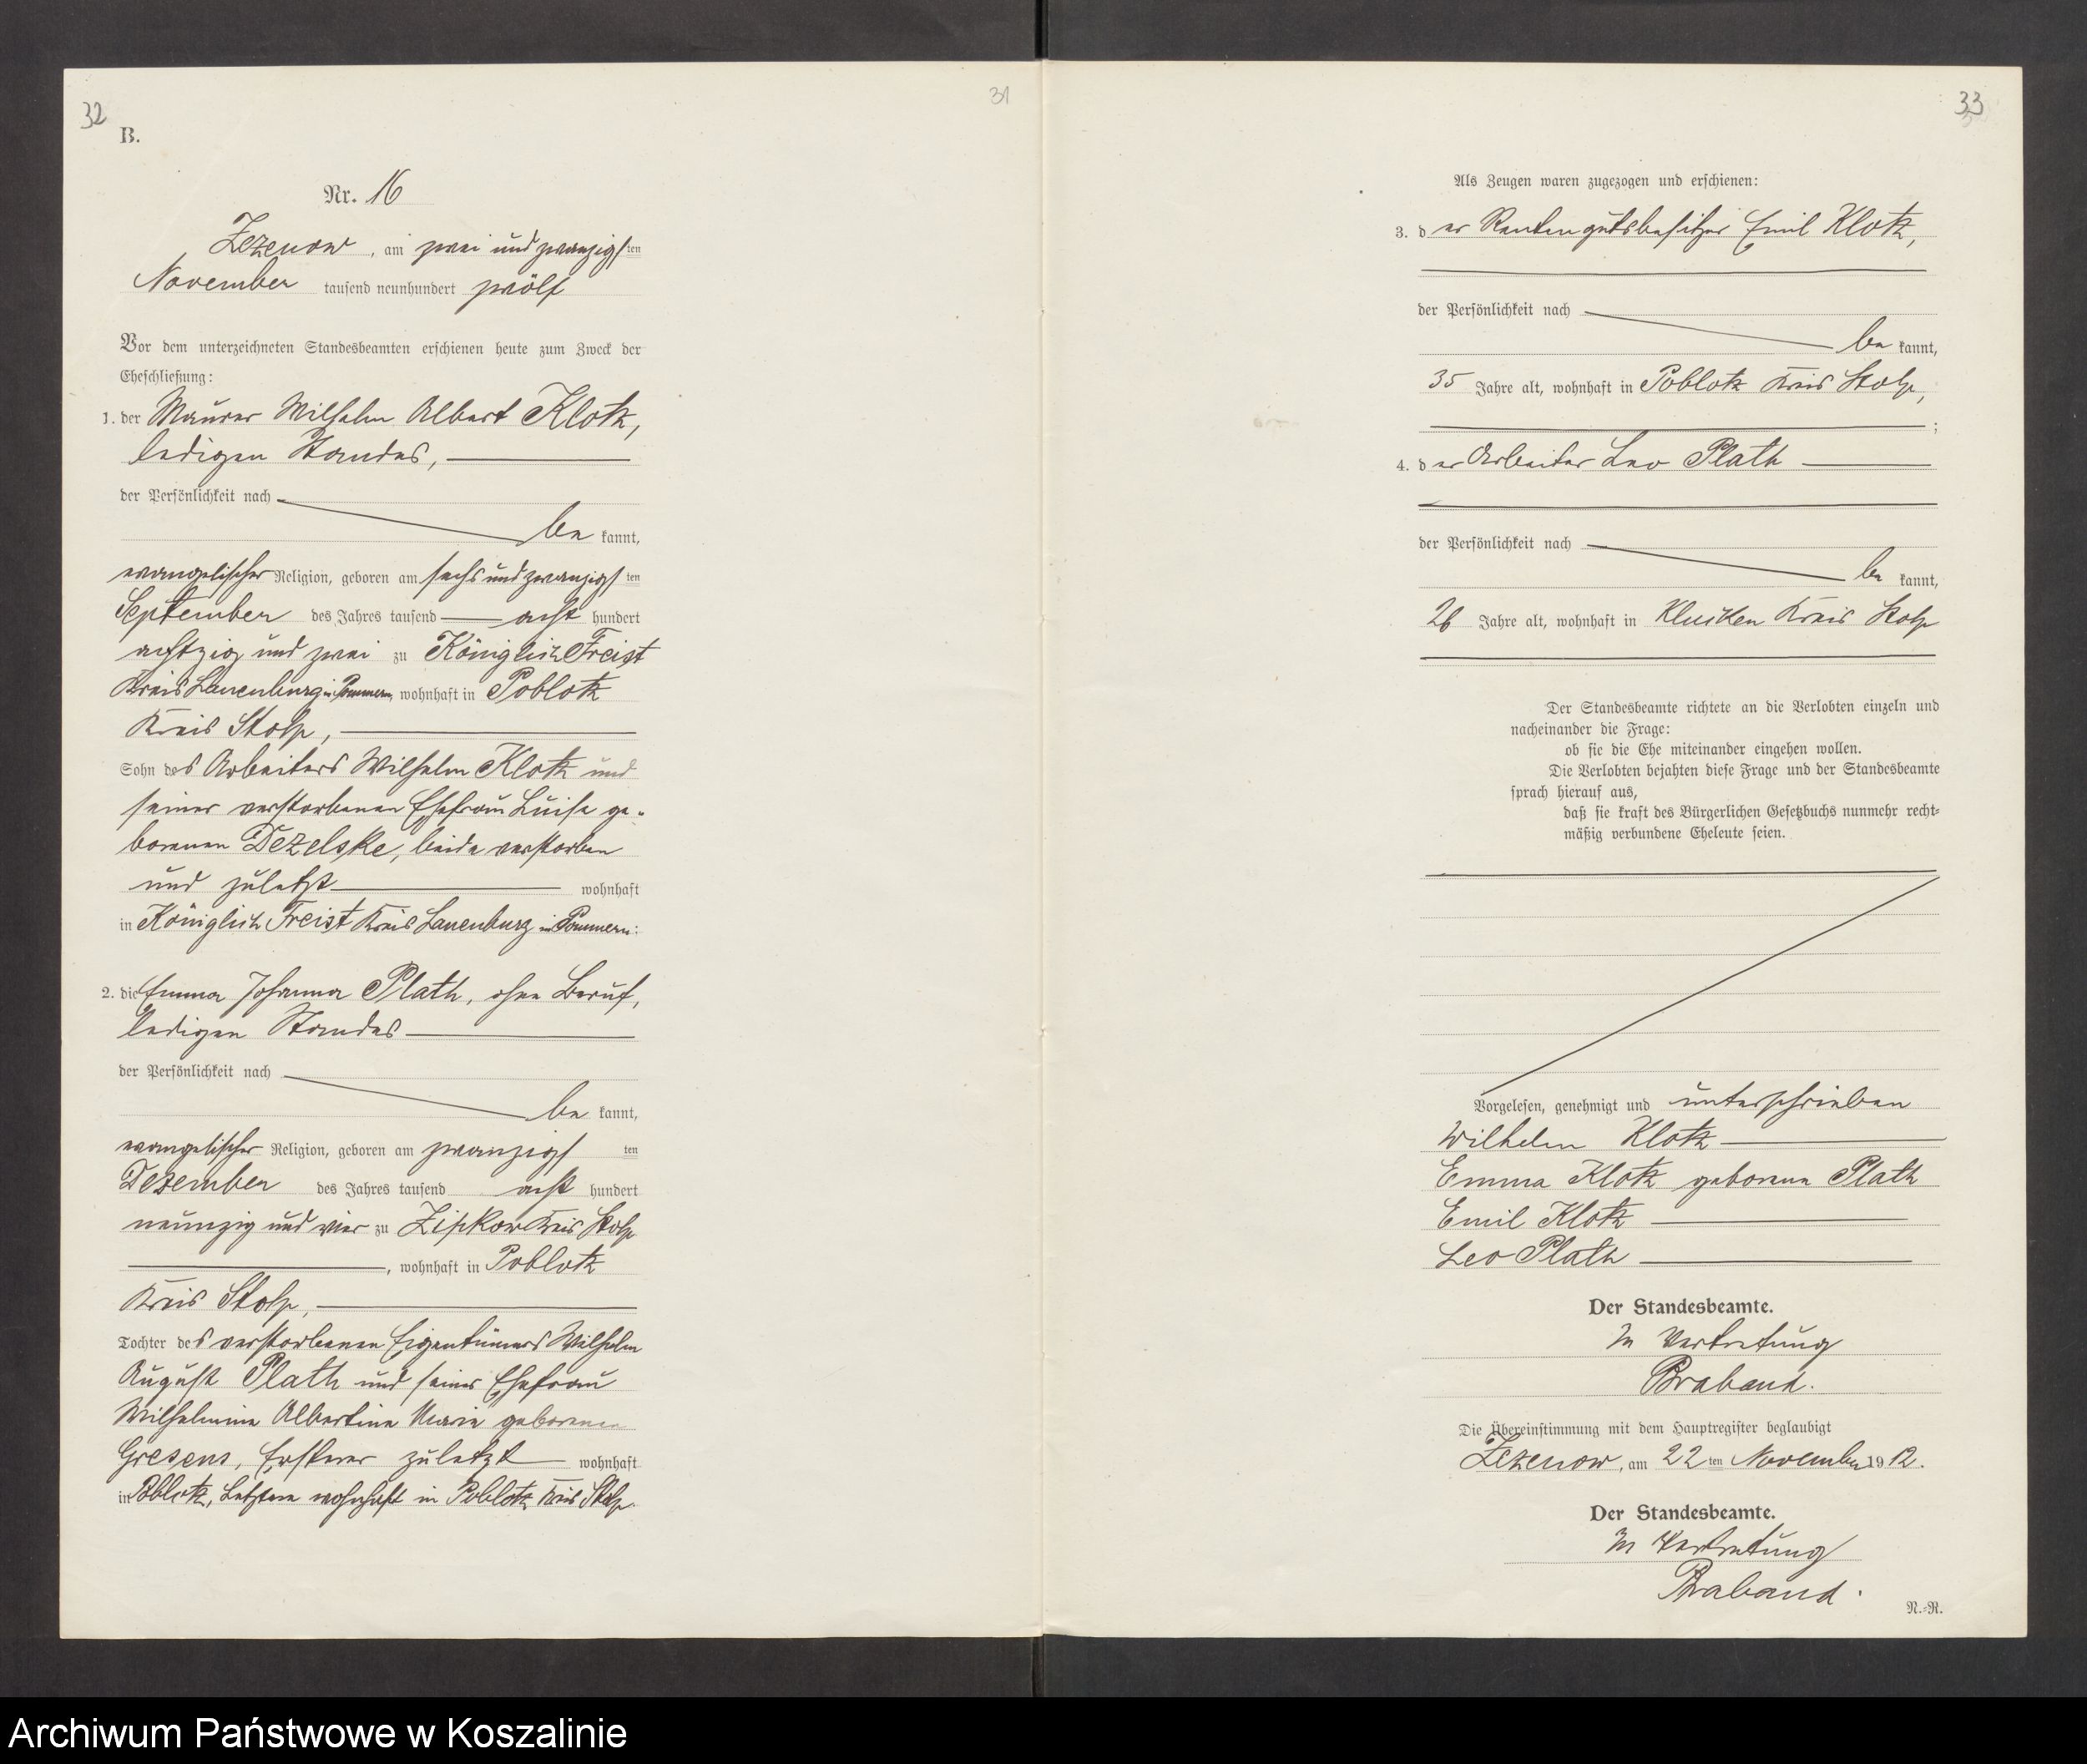 32
B.
31
Nr. 16
Zezenow, am zwei und zwanzigsten
November tausend neunhundert zwölf
Vor dem unterzeichneten Standesbeamten erschienen heute zum Zweck der
Eheschließung:
1. der Maurer Wilhelm Albert Klotz,
ledigen Standes,
der Persönlichkeit nach
be kannt,
evangelischer Religion, geboren am sechs und zwanzigsten
September des Jahres tausend acht hundert
achtzig und zwei zu Königlich Freist
Kreis Lauenburg in Pommern, wohnhaft in Poblotz
Kreis Stolp,
Sohn des Arbeiters Wilhelm Klotz und
seiner verstorbenen Ehefrau Luise ge-
borenen Dezelske, beide verstorben
und zuletzt wohnhaft
in Königlich Freist Kreis Lauenburg in Pommern:
2. die Emma Johanna Plath, ohne Beruf,
ledigen Standes
der Persönlichkeit nach
be kannt,
evangelischer Religion, geboren am zwanzigsten
Dezember des Jahres tausend acht hundert
neunzig und vier zu Zipkow Kreis Stolp
, wohnhaft in Poblotz
Kreis Stolp,
Tochter des verstorbenen Eigentümers Wilhelm
August Plath und seiner Ehefrau
Wilhelmine Albertine Marie geborenen
Gresens, Ersterer zuletzt wohnhaft
in Poblotz, Letztere wohnhaft in Poblotz Kreis Stolp.
33
Als Zeugen waren zugezogen und erschienen:
3. der Rentengutsbesitzer Emil Klotz,
der Persönlichkeit nach
be kannt,
35 Jahre alt, wohnhaft in Poblotz Kreis Stolp,
;
4. der Arbeiter Leo Plath
der Persönlichkeit nach
be kannt,
26 Jahre alt, wohnhaft in Klucken Kreis Stolp
Der Standesbeamte richtete an die Verlobten einzeln und
nacheinander die Frage:
ob sie die Ehe miteinander eingehen wollen.
Die Verlobten bejahten diese Frage und der Standesbeamte
sprach hierauf aus,
daß sie kraft des Bürgerlichen Gesetzbuchs nunmehr recht-
mäßig verbundene Eheleute seien.
Vorgelesen, genehmigt und unterschrieben
Wilhelm Klotz
Emma Klotz geborene Plath
Emil Klotz
Leo Plath
Der Standesbeamte.
In Vertretung
Braband.
Die Übereinstimmung mit dem Hauptregister beglaubigt
Zezenow, am 22 ten November 1912.
Der Standesbeamte.
In Vertretung
Braband.
N.-R.
Archiwum Państwowe w Koszalinie